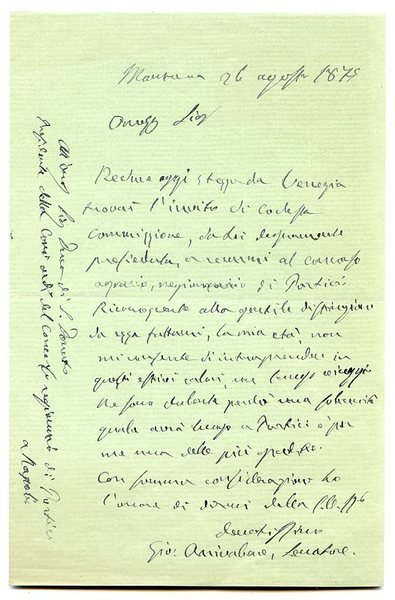 Mantova 26 agosto 1875
Onor Sig
Reduce oggi stesso da Venezia
trovai l'invito di codesta
commissione, da Lei degnamente
presieduta, a recarmi al concorso
agrario, regionario di Portici
Riconoscente alla gentile distinzione
da essa fattami, la mia età, non
mi consente di intraprendere in
questi estivi calori, un lungo viaggio
Ne sono dolente perché una solennità
quale avrà luogo a Portici è per
me una delle più
Con somma considerazione ho
l'onore di dirmi della S.V.
devotissimo
Gio: Arrivabene, Senatore.
All'onor Sig Duca di S. Donato
Presidente della Com ord del concorso regionario di Portici
a Napoli